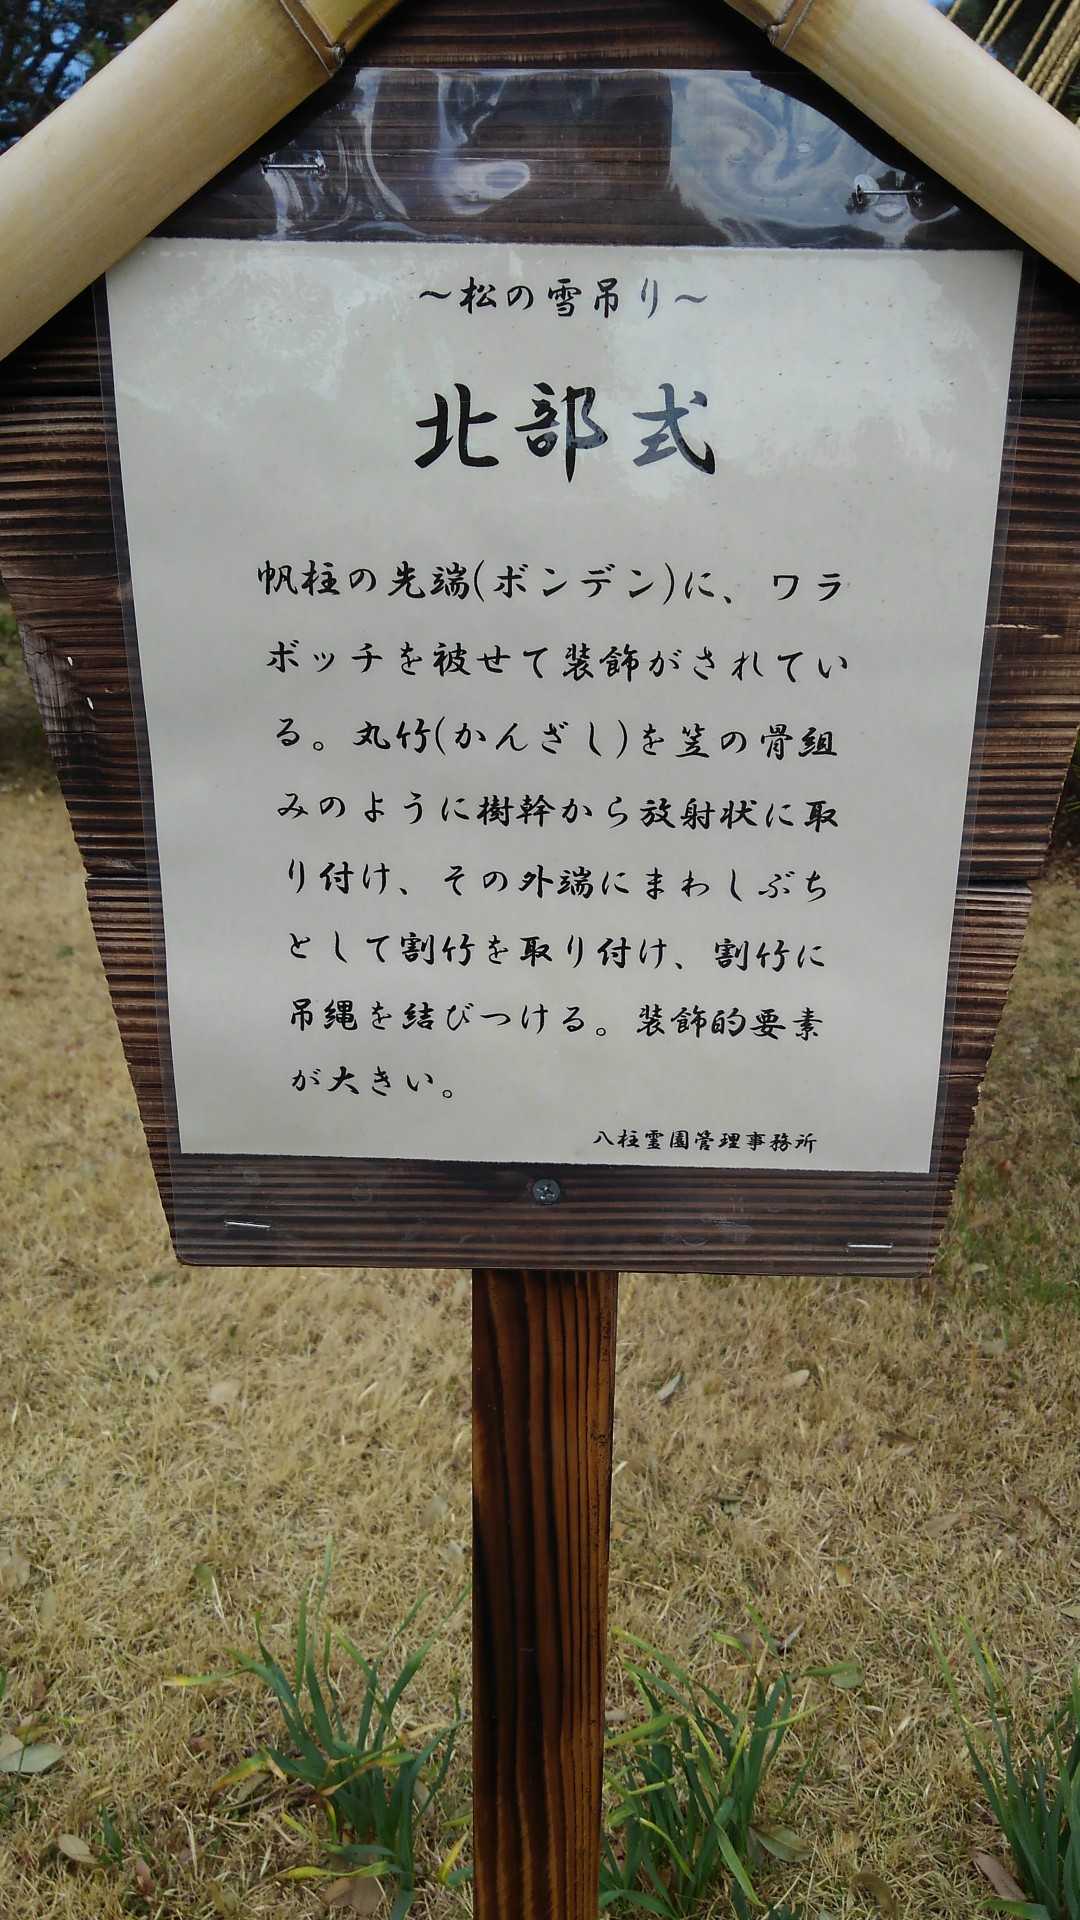 ～松の雪吊り～
北部式
帆柱の先端(ボンデン)に、ワラ
ボッチを被せて装飾がされてい
る。丸竹(かんざし)を笠の骨組
みのように樹幹から放射状に取
り付け、その外端にまわしぶち
として割竹を取り付け、割竹に
吊縄を結びつける。装飾的要素
が大きい。
八柱霊園管理事務所